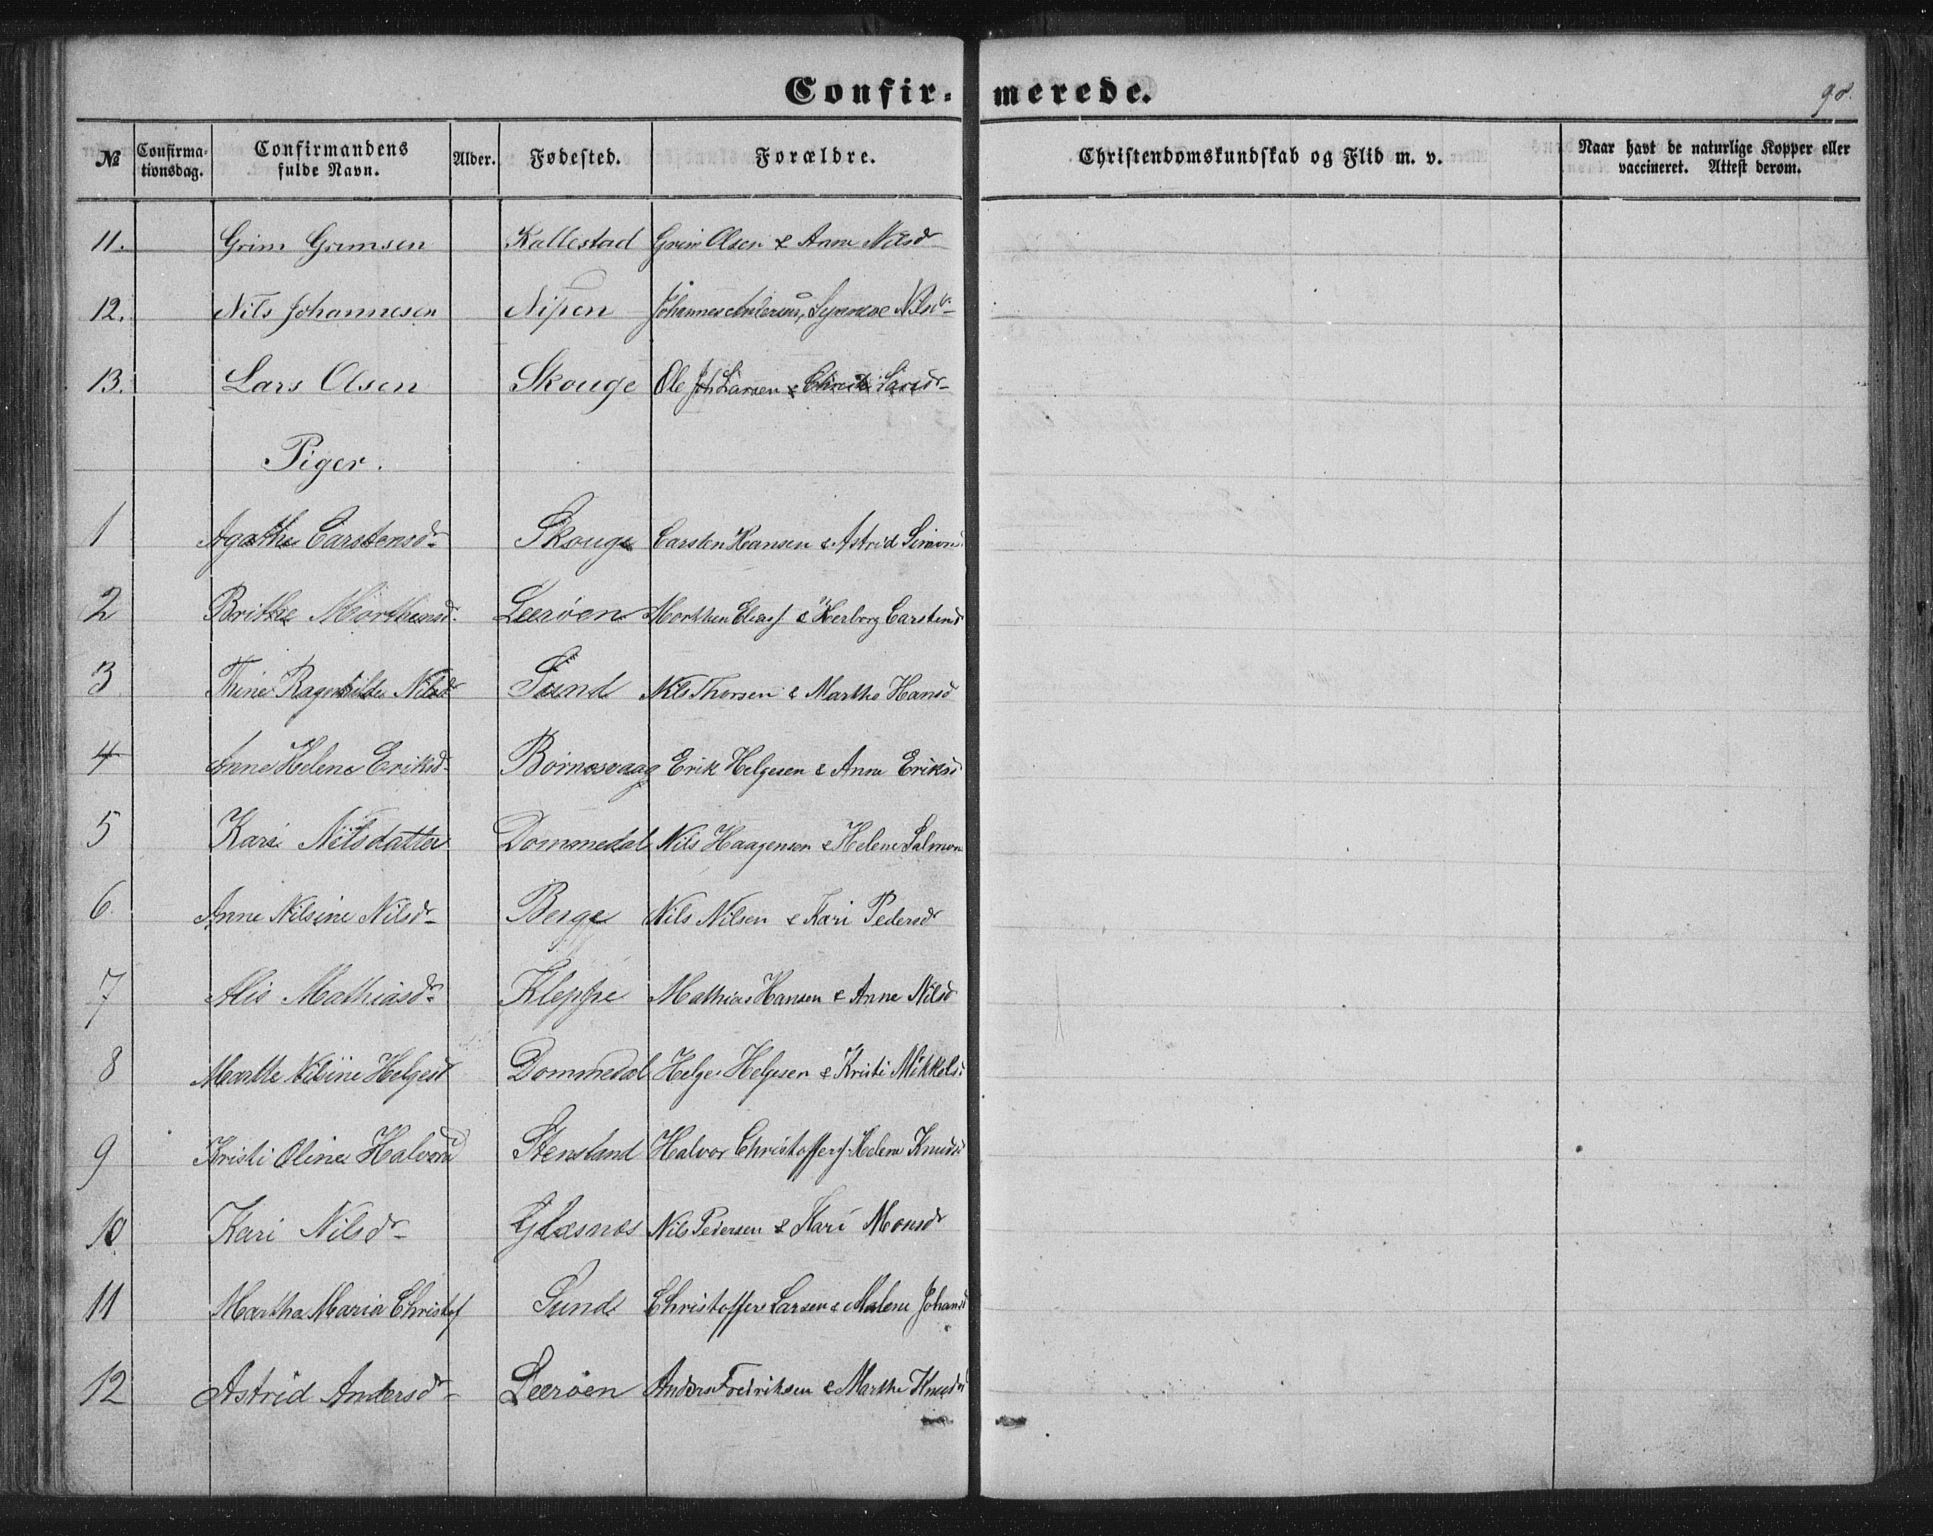 Confir-merede.
98.
№ Confirma-tionsdag. Confirmandens fulde Navn. Alder. Fødested. Forældre. Christendomskundskab og Flid m. v. Naar havt de naturlige Kopper eller vaccineret. Attest derom.
11. Grim Grimsen Kallestad Grim Olsen & Anne Nilsd
12. Nils Johannesen Nipen Johannes Andersen, Synnove Nilsd
13. Lars Olsen Skouge Ole Larsen & Christi Larsd
Piger.
1 Agathe Carstensdr Skouge Carsten Hansen & Astrid Simons
2 Brithe Morthensd. Leerøen Morthen Elias & Herborg Carstensd
3 Thine Ragnhilde Nilsd Sund Nils Thorsen & Marthe Hansd
4 Anne Helene Eriksd Bornesvaag Erik Helgesen & Anne Eriksd
5 Kari Nilsdatter Dommedal Nils Haagensen & Helene Salmon
6 Anne Nilsine Nilsdr Berge Nils Nilsen & Kari Pedersd
7 Alis Mathiasdr Kleppe Mathias Hansen & Anne Nilsd
8 Marthe Nilsine Helgesd Dommedal Helge Helgesen & Kristi Mikkelsd
9 Kristi Oline Halvord Stensland Halvor Christoffers Helene Knudsd
10 Kari Nilsdr Glæsnes Nils Pedersen & Kari Monsd
11 Martha Maria Christof Sund Christoffer Larsen & Malene Johansd
12 Astrid Andersd Leerøen Anders Fredriksen & Marthe Knudsd